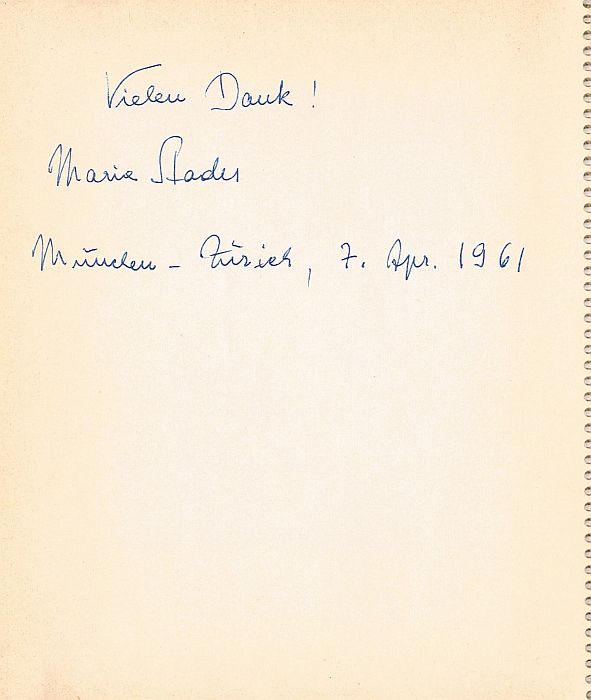 Vielen Dank!
Maria Stader
München - Zürich, 7. Apr. 1961